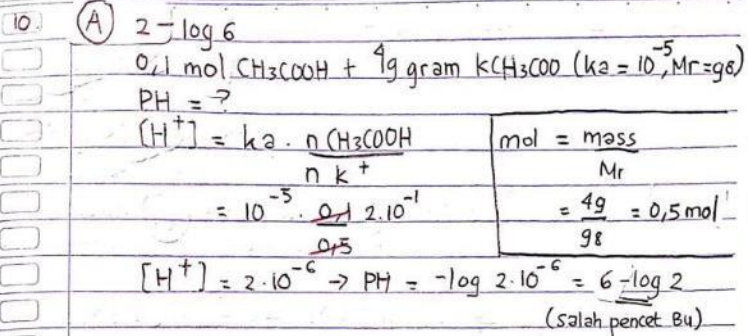 10. (A) 2 - log 6
0,1 mol CH3COOH + 49 gram KCH3COO (ka = 10^-5, Mr=98)
PH = ?
[H+] = ka . n CH3COOH / n k+
mol = mass / Mr
= 10^-5 . 0,1 / 0,5 2.10^-1
= 49 / 98 = 0,5 mol
[H+] = 2.10^-6 → PH = -log 2.10^-6 = 6 - log 2
(salah pencet Bu)